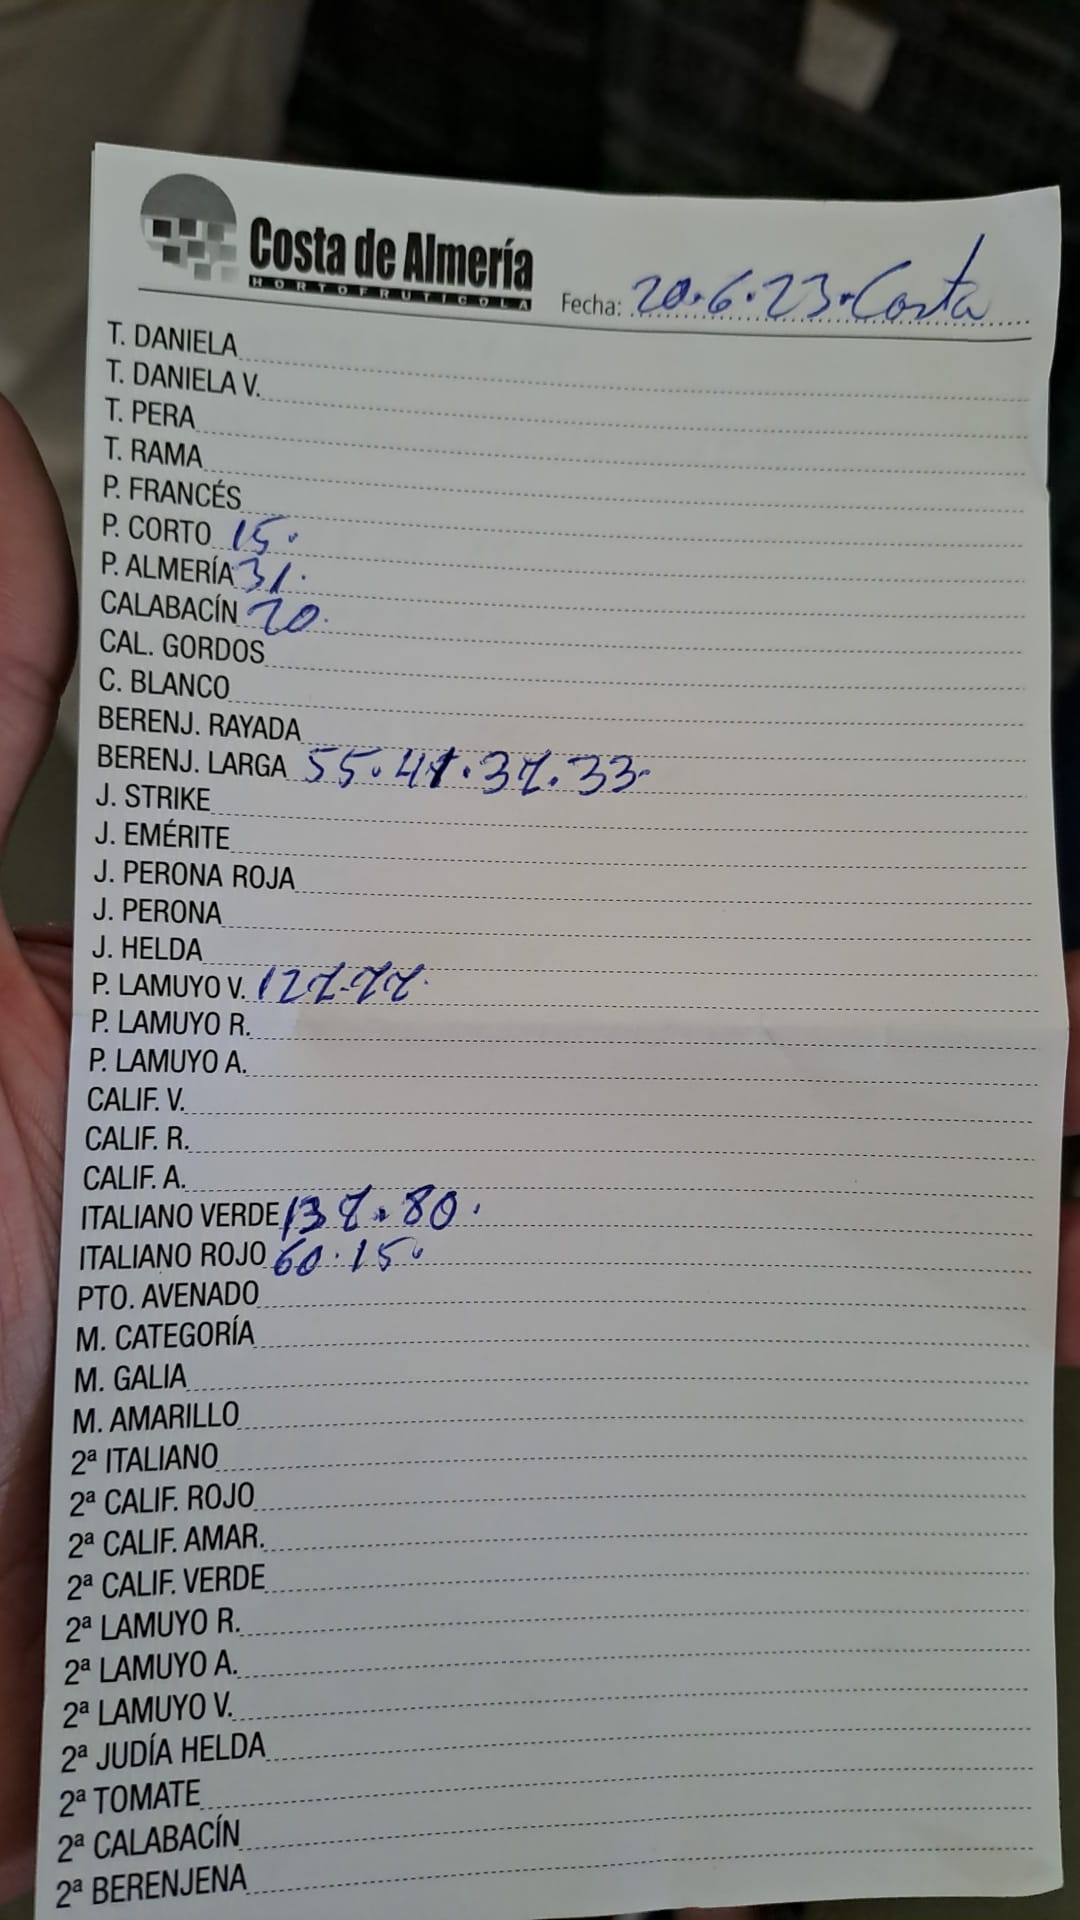 Costa de Almería
HORTOFRUTICOLA
Fecha: 20.6.23. Costa
T. DANIELA
T. DANIELA V.
T. PERA
T. RAMA
P. FRANCÉS
P. CORTO 15.
P. ALMERÍA 31.
CALABACÍN 20.
CAL. GORDOS
C. BLANCO
BERENJ. RAYADA
BERENJ. LARGA 55.41.37.33-
J. STRIKE
J. EMÉRITE
J. PERONA ROJA
J. PERONA
J. HELDA
P. LAMUYO V. 127-77.
P. LAMUYO R.
P. LAMUYO A.
CALIF. V.
CALIF. R.
CALIF. A.
ITALIANO VERDE 137.80.
ITALIANO ROJO 60.15.
PTO. AVENADO
M. CATEGORÍA
M. GALIA
M. AMARILLO
2ª ITALIANO
2ª CALIF. ROJO
2ª CALIF. AMAR.
2ª CALIF. VERDE
2ª LAMUYO R.
2ª LAMUYO A.
2ª LAMUYO V.
2ª JUDÍA HELDA
2ª TOMATE
2ª CALABACÍN
2ª BERENJENA